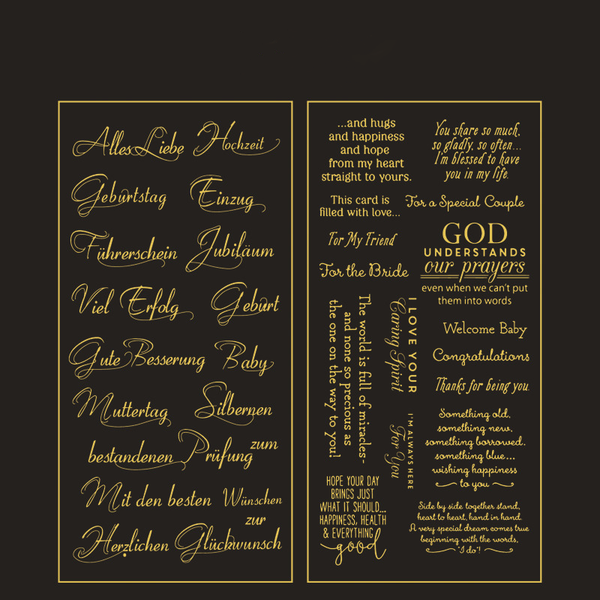 Alles Liebe
Hochzeit
Geburtstag
Einzug
Führerschein
Jubiläum
Viel Erfolg
Geburt
Gute Besserung
Baby
Muttertag
Silbernen
bestandenen Prüfung zum
Mit den besten Wünschen
Herzlichen Glückwunsch zur
...and hugs
and happiness
and hope
from my heart
straight to yours.
This card is
filled with love...
For My Friend
For the Bride
The world is full of miracles-
and none so precious as
the one on the way to you!
I LOVE YOUR
Caring Spirit
I'M ALWAYS HERE
For You
HOPE YOUR DAY
BRINGS JUST
WHAT IT SHOULD...
HAPPINESS, HEALTH
& EVERYTHING
good
You share so much,
so gladly, so often...
I'm blessed to have
you in my life.
For a Special Couple
GOD
UNDERSTANDS
our prayers
even when we can't put
them into words
Welcome Baby
Congratulations
Thanks for being you.
Something old,
something new,
something borrowed,
something blue...
wishing happiness
to you
Side by side together stand,
heart to heart, hand in hand.
A very special dream comes true
beginning with the words,
"I do"!